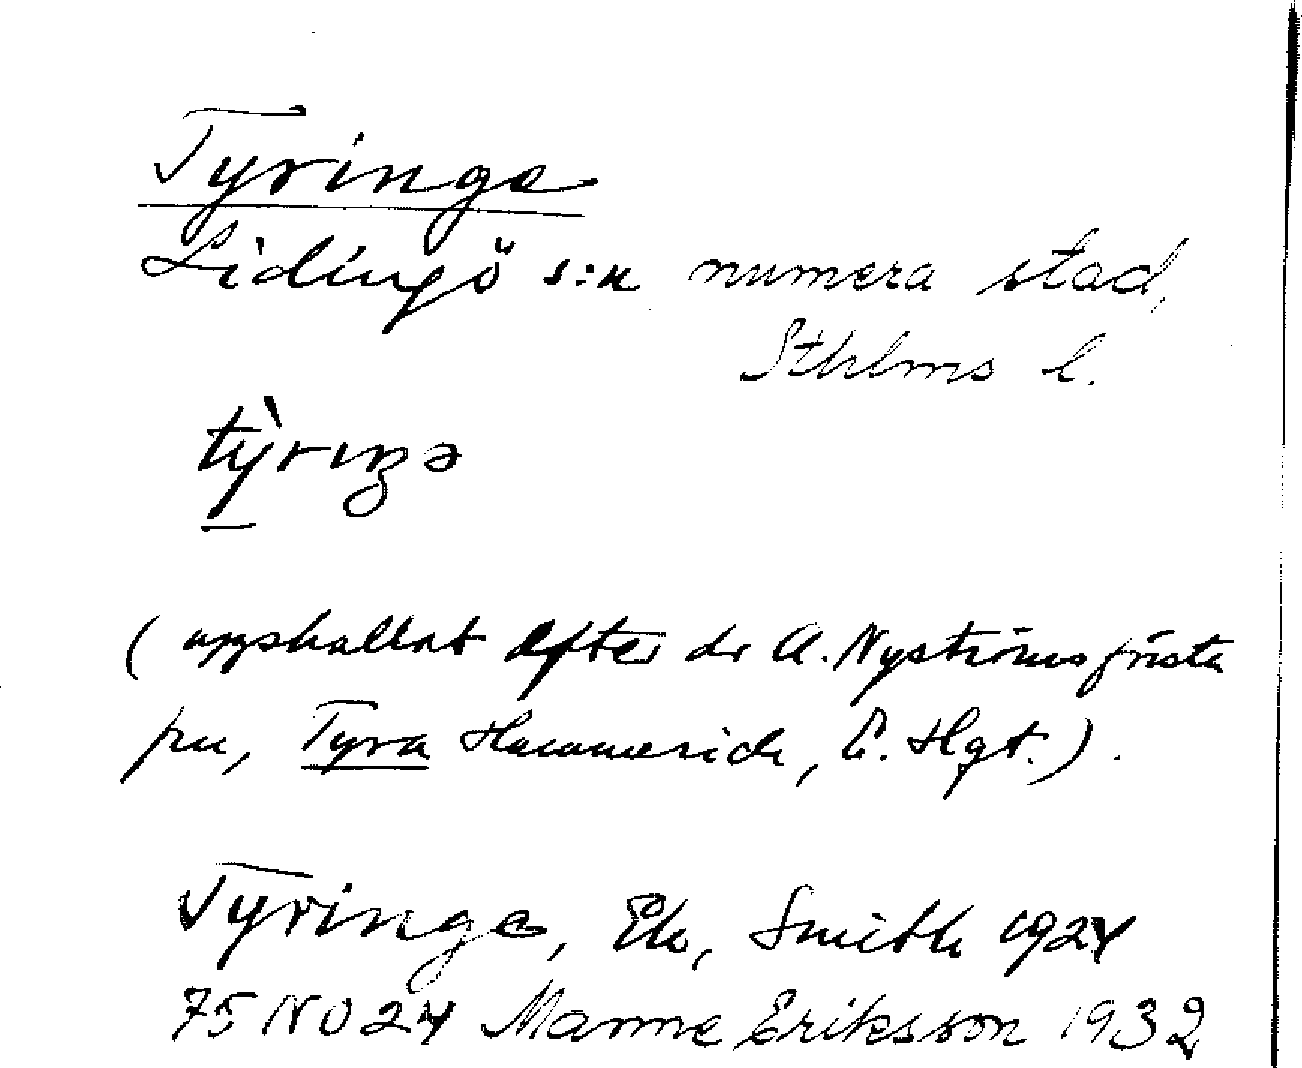 Tyringe
Lidingö s:n numera stad,
Sthlms l.
ty̆̀rıŋə
(uppkallat efter dr A. Nyströms första
fru, Tyra Hammerich, E. Hqt.).
Tyringe, Ek, Smith 1924
75 NO 24 Manne Eriksson 1932